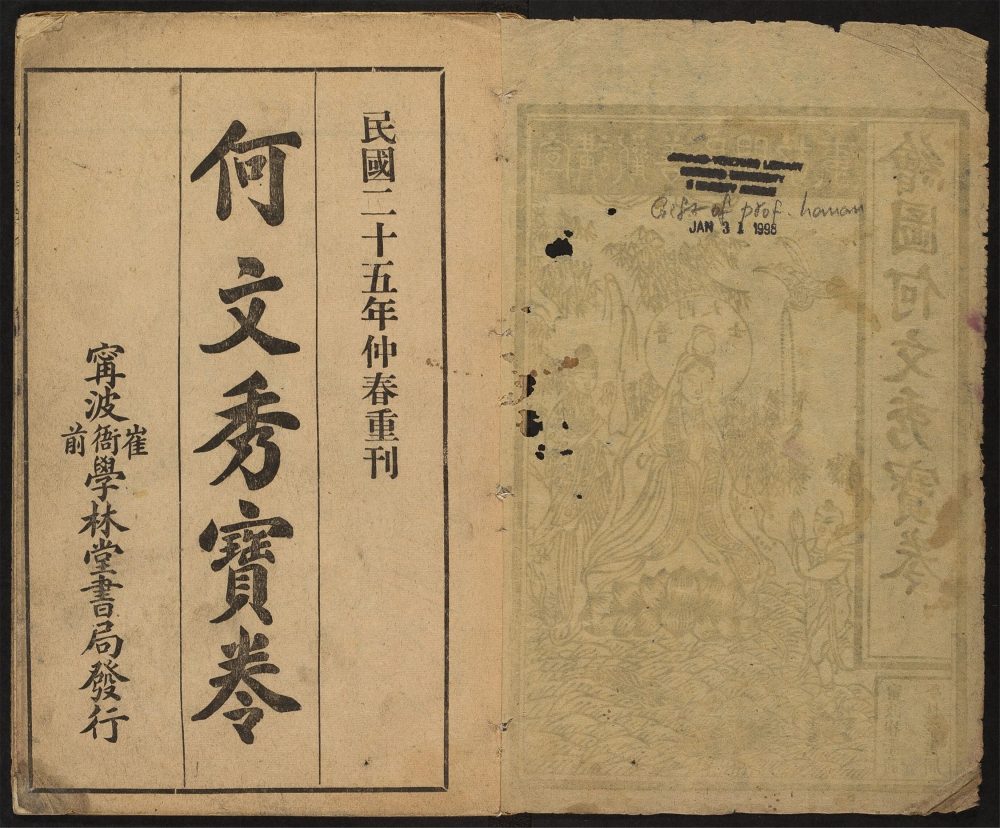 繪圖何文秀寶卷
HARVARD-YENCHING LIBRARY
HARVARD UNIVERSITY
Gift of prof. hanan
JAN 3 1 1998
民國二十五年仲春重刊
何文秀寶卷
寗波崔衙前學林堂書局發行